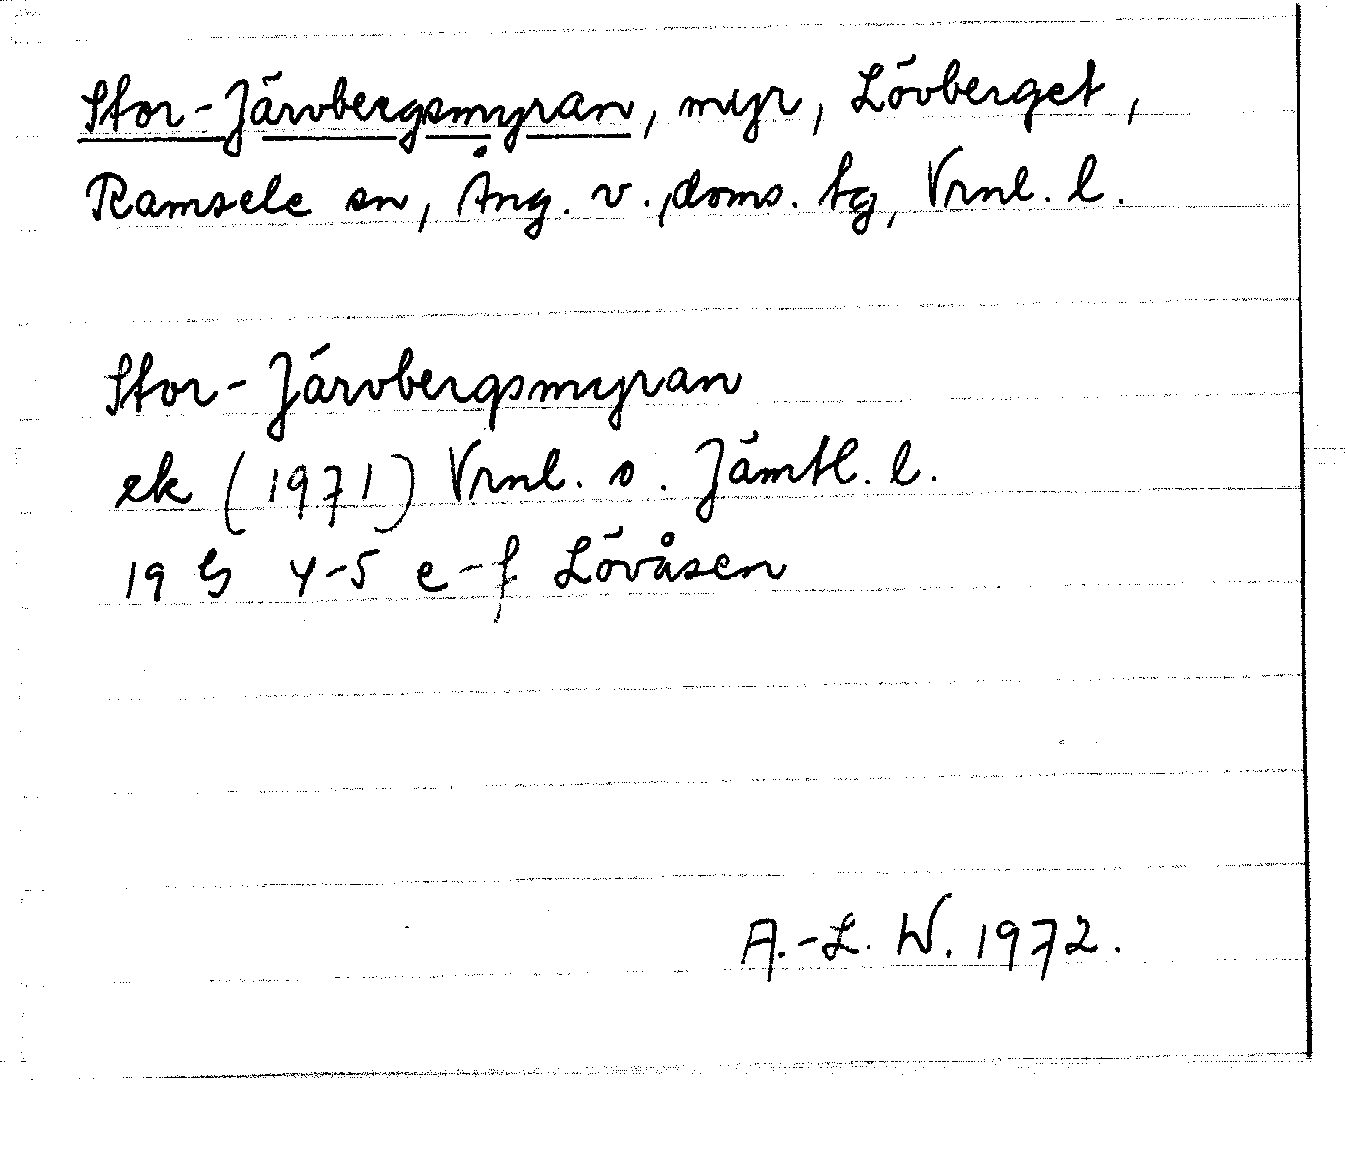 Stor-Järvbergsmyran, myr, Lövberget,
Ramsele sn, Ång. v. doms. tg, Vrnl. l.
Stor-Järvbergsmyran
ek (1971) Vrnl. o. Jämtl. l.
19 G 4-5 e-f Lövåsen
A.-L. W. 1972.